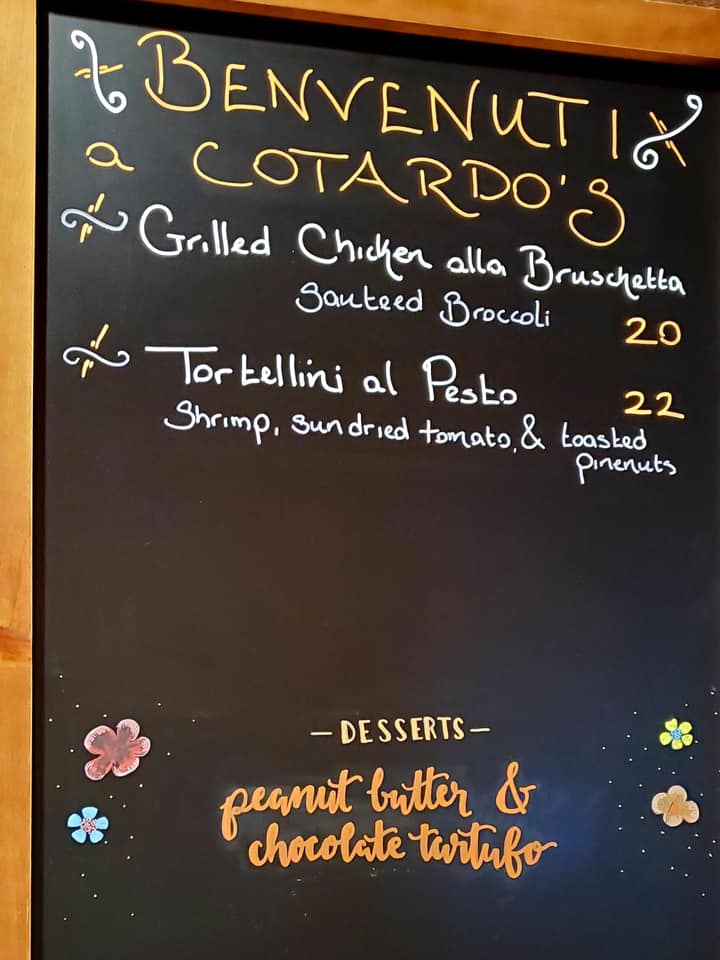 BENVENUTI
a COTARDO'S
Grilled Chicken alla Bruschetta
Sauteed Broccoli 20
Tortellini al Pesto 22
Shrimp, sundried tomato, & toasted
pinenuts
- DESSERTS -
peanut butter &
chocolate tartufo